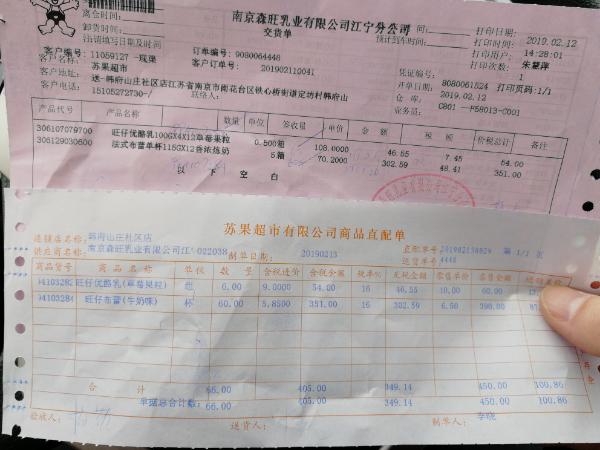 南京森旺乳业有限公司江宁分公司
交货单
打印日期: 2019.02.12
打印时间: 14:28:01
打印次数: 1
离仓时间:
卸货时间: 预计到车时间:
客户编号: 11059127 订单编号: 9080064448
客户名称: 苏果超市 客户订单号: 201902110041
凭证编号: 8080061524 打印页码:1/1
开单日期: 2019.02.12
客户地址: 迷-韩府山庄社区店江苏省南京市雨花台区铁心桥街道定坊村韩府山
电话: 15105272730-/ 联络人:
业务员: C801
产品代号 产品名称 数量 单位 签收量 单价 金额 税额 价税总计 备注
306107079700 旺仔优酪乳100GX4X12草莓果粒 0.500箱 108.0000 46.55 7.45 54.00
306129030600 法式布蕾单杯115GX12香浓炼奶 5箱 70.2000 302.59 48.41 351.00
以下空白
苏果超市有限公司商品直配单
连锁店名称: 韩府山庄社区店
供应商名称: 南京森旺乳业有限公司江 022038 制单日期: 20190213
直配单号: 第 1/1 页
送货单号: 4448
商品货号 商品名称 单位 数量 含税进价 含税金额 税率% 无税金额 零售单价 零售金额
旺仔优酪乳(草莓果粒) 组 6.00 9.0000 54.00 16 46.55 10.00 60.00
旺仔布蕾(牛奶味) 杯 60.00 5.8500 351.00 16 302.59 6.50 390.00
合计 66.00 405.00 349.14 450.00 100.86
单据总合计数: 66.00 405.00 349.14 450.00 100.86
验收人: 送货人: 制单人: 李晓